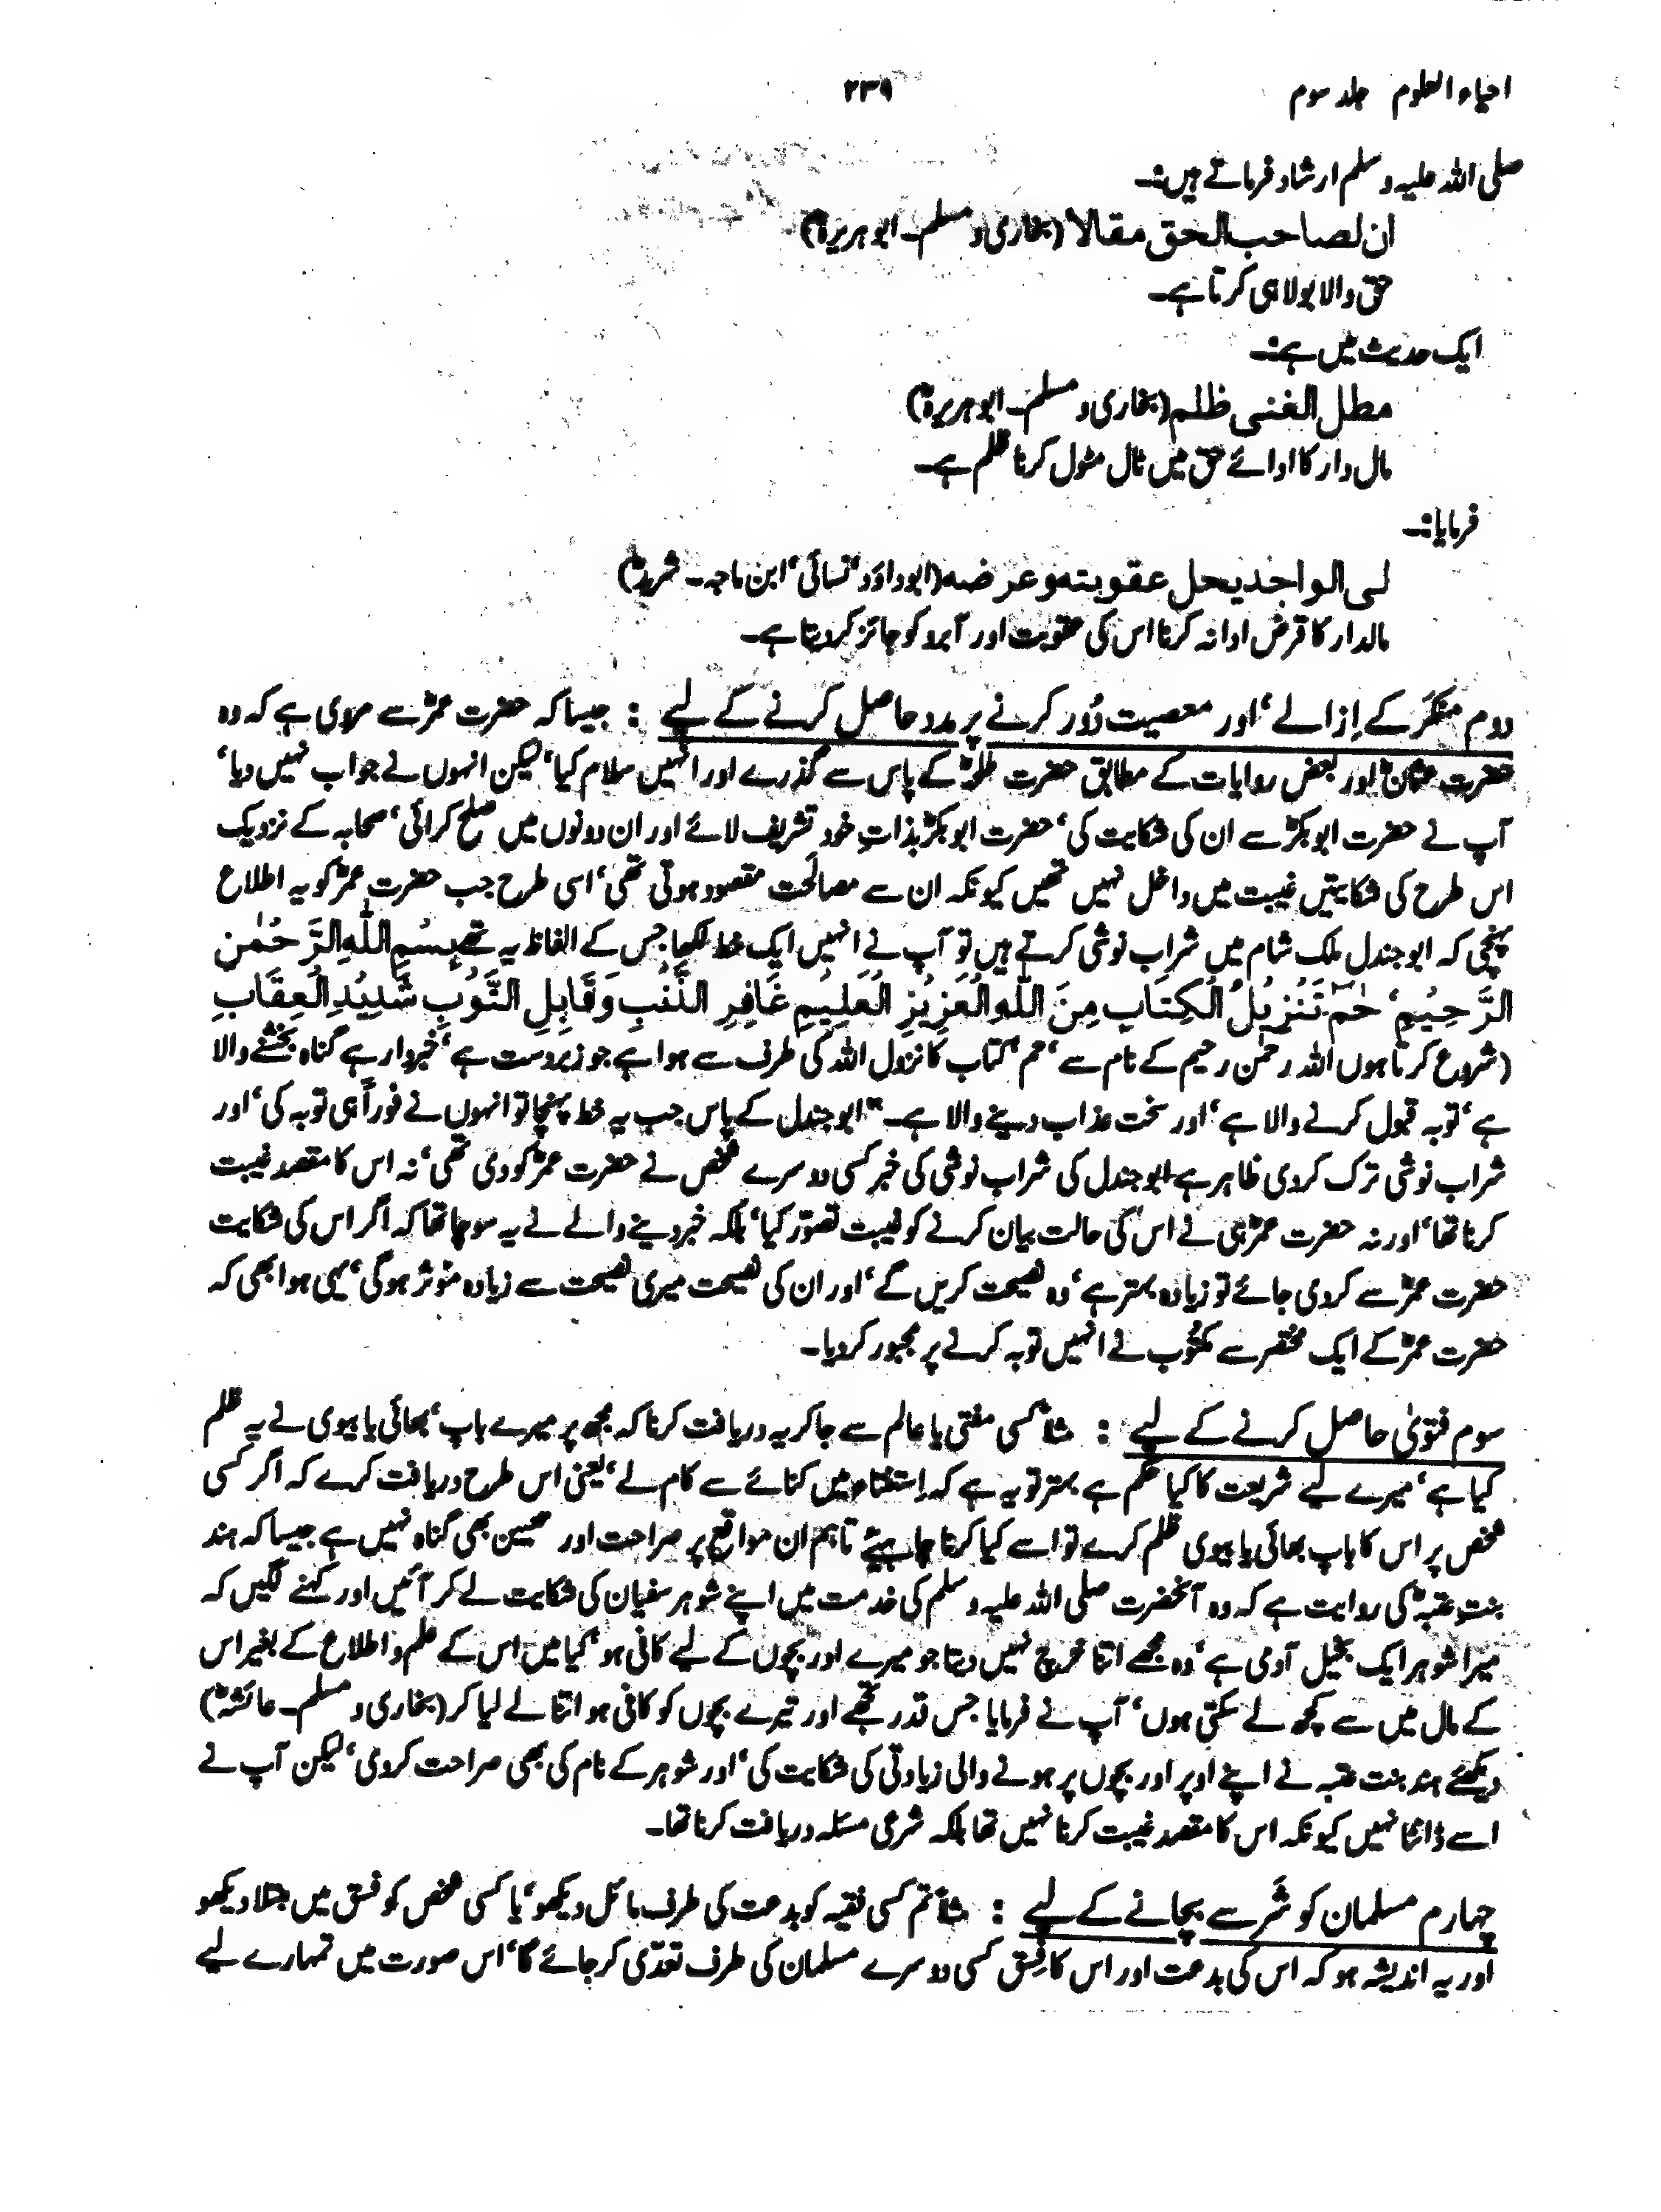 احیاء العلوم جلد سوم
۲۳۹
صلی اللہ علیہ وسلم ارشاد فرماتے ہیں:۔
ان لصاحب الحق مقالا (بخاری و مسلم۔ ابو ہریرہؓ)
حق والا بولا ہی کرتا ہے۔
ایک حدیث میں ہے:۔
مطل الغنی ظلم (بخاری و مسلم۔ ابو ہریرہؓ)
مال دار کا ادائے حق میں ٹال مٹول کرنا ظلم ہے۔
فرمایا:۔
لی الواجد یحل عقوبتہ وعرضہ (ابوداؤد، نسائی، ابن ماجہ۔ شریدؓ)
مالدار کا قرض ادا نہ کرنا اس کی عقوبت اور آبرو کو جائز کر دیتا ہے۔
دوم منکَر کے اِزالے، اور معصیت دُور کرنے پر مدد حاصل کرنے کے لیے : جیسا کہ حضرت عمرؓ سے مروی ہے کہ وہ
حضرت عثمانؓ اور بعض روایات کے مطابق حضرت طلحہؓ کے پاس سے گذرے اور انہیں سلام کیا، لیکن انہوں نے جواب نہیں دیا،
آپ نے حضرت ابوبکرؓ سے ان کی شکایت کی، حضرت ابوبکرؓ بذاتِ خود تشریف لائے اور ان دونوں میں صلح کرائی، صحابہ کے نزدیک
اس طرح کی شکایتیں غیبت میں داخل نہیں تھیں کیونکہ ان سے مصالَحت مقصود ہوتی تھی، اسی طرح جب حضرت عمرؓ کو یہ اطلاع
پہنچی کہ ابوجندل ملک شام میں شراب نوشی کرتے ہیں تو آپ نے انہیں ایک خط لکھا جس کے الفاظ یہ تھے بِسْمِ اللّٰہِ الرَّحْمٰنِ
الرَّحِیْمِ، حٰمٓ تَنْزِیْلُ الْکِتَابِ مِنَ اللّٰہِ الْعَزِیْزِ الْعَلِیْمِ غَافِرِ الذَّنْبِ وَقَابِلِ التَّوْبِ شَدِیْدِ الْعِقَابِ
(شروع کرتا ہوں اللہ رحمٰن رحیم کے نام سے، حٰم، کتاب کا نزول اللہ کی طرف سے ہوا ہے جو زبردست ہے، خبردار ہے گناہ بخشنے والا
ہے، توبہ قبول کرنے والا ہے، اور سخت عذاب دینے والا ہے۔" ابوجندل کے پاس جب یہ خط پہنچا تو انہوں نے فوراً ہی توبہ کی، اور
شراب نوشی ترک کردی ظاہر ہے ابوجندل کی شراب نوشی کی خبر کسی دوسرے شخص نے حضرت عمرؓ کو دی تھی، نہ اس کا مقصد غیبت
کرنا تھا، اور نہ حضرت عمرؓ ہی نے اس کی حالت بیان کرنے کو غیبت تصوّر کیا، بلکہ خبر دینے والے نے یہ سوچا تھا کہ اگر اس کی شکایت
حضرت عمرؓ سے کردی جائے تو زیادہ بہتر ہے، وہ نصیحت کریں گے، اور ان کی نصیحت میری نصیحت سے زیادہ مؤثر ہوگی، یہی ہوا بھی کہ
حضرت عمرؓ کے ایک مختصر سے مکتوب نے انہیں توبہ کرنے پر مجبور کردیا۔
سوم فتویٰ حاصل کرنے کے لیے : مثلاً کسی مفتی یا عالم سے جا کر یہ دریافت کرنا کہ مجھ پر میرے باپ، بھائی یا بیوی نے یہ ظلم
کیا ہے، میرے لیے شریعت کا کیا حکم ہے بہتر تو یہ ہے کہ اِستفتاء میں کنائے سے کام لے، یعنی اس طرح دریافت کرے کہ اگر کسی
شخص پر اس کا باپ بھائی یا بیوی ظلم کرے تو اسے کیا کرنا چاہیئے تاہم ان مواقع پر صراحت اور تعیین بھی گناہ نہیں ہے جیسا کہ ہند
بنتِ عتبہؓ کی روایت ہے کہ وہ آنحضرت صلی اللہ علیہ وسلم کی خدمت میں اپنے شوہر سفیان کی شکایت لے کر آئیں اور کہنے لگیں کہ
میرا شوہر ایک بخیل آدمی ہے، وہ مجھے اتنا خرچ نہیں دیتا جو میرے اور بچوں کے لیے کافی ہو، کیا میں اس کے علم و اطلاع کے بغیر اس
کے مال میں سے کچھ لے سکتی ہوں، آپ نے فرمایا جس قدر تجھے اور تیرے بچوں کو کافی ہو اتنا لے لیا کر (بخاری و مسلم۔ عائشہؓ)
دیکھئے ہند بنت عتبہ نے اپنے اوپر اور بچوں پر ہونے والی زیادتی کی شکایت کی، اور شوہر کے نام کی بھی صراحت کردی، لیکن آپ نے
اسے ڈانٹا نہیں کیونکہ اس کا مقصد غیبت کرنا نہیں تھا بلکہ شرعی مسئلہ دریافت کرنا تھا۔
چہارم مسلمان کو شَر سے بچانے کے لیے : مثلاً تم کسی فقیہ کو بدعت کی طرف مائل دیکھو، یا کسی شخص کو فسق میں مبتلا دیکھو
اور یہ اندیشہ ہو کہ اس کی بدعت اور اس کا فِسق کسی دوسرے مسلمان کی طرف تعدّی کر جائے گا، اس صورت میں تمہارے لیے